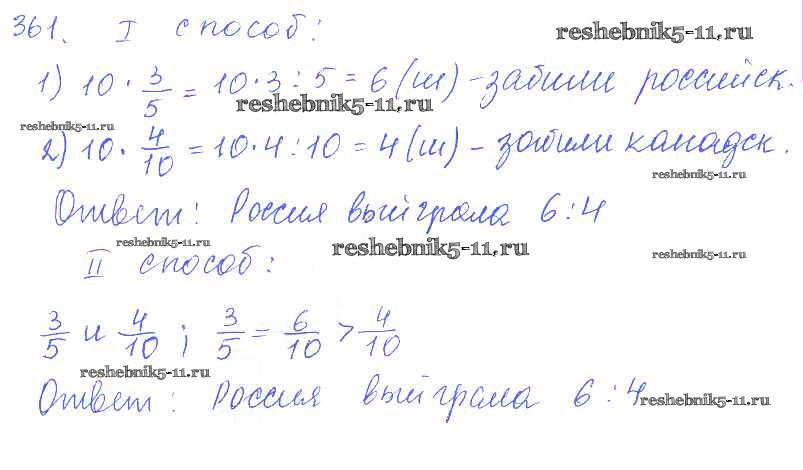 361. I способ: reshebnik5-11.ru
1) 10 · 3/5 = 10 · 3 : 5 = 6 (ш) - забили российск.
reshebnik5-11.ru
reshebnik5-11.ru
2) 10 · 4/10 = 10 · 4 : 10 = 4 (ш) - забили канадск.
reshebnik5-11.ru
Ответ: Россия выйграла 6 : 4
reshebnik5-11.ru reshebnik5-11.ru reshebnik5-11.ru
II способ:
3/5 и 4/10 ; 3/5 = 6/10 > 4/10
reshebnik5-11.ru
Ответ: Россия выйграла 6 : 4
reshebnik5-11.ru